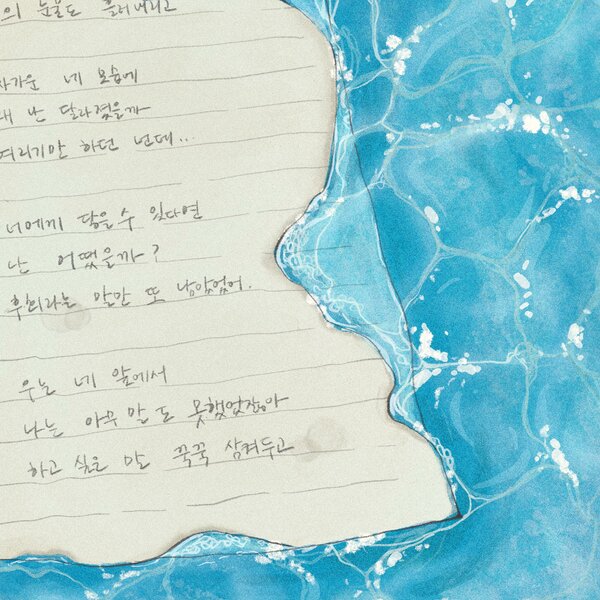 의 눈물도 흘러내리고
차가운 네 모습에
난 달라졌을까
여리기만 하던 넌데...
너에게 닿을 수 있다면
난 어땠을까?
후회라는 말만 또 남았었어.
우는 네 앞에서
나는 아무 말도 못했었잖아
하고 싶은 말 꾹꾹 삼켜두고